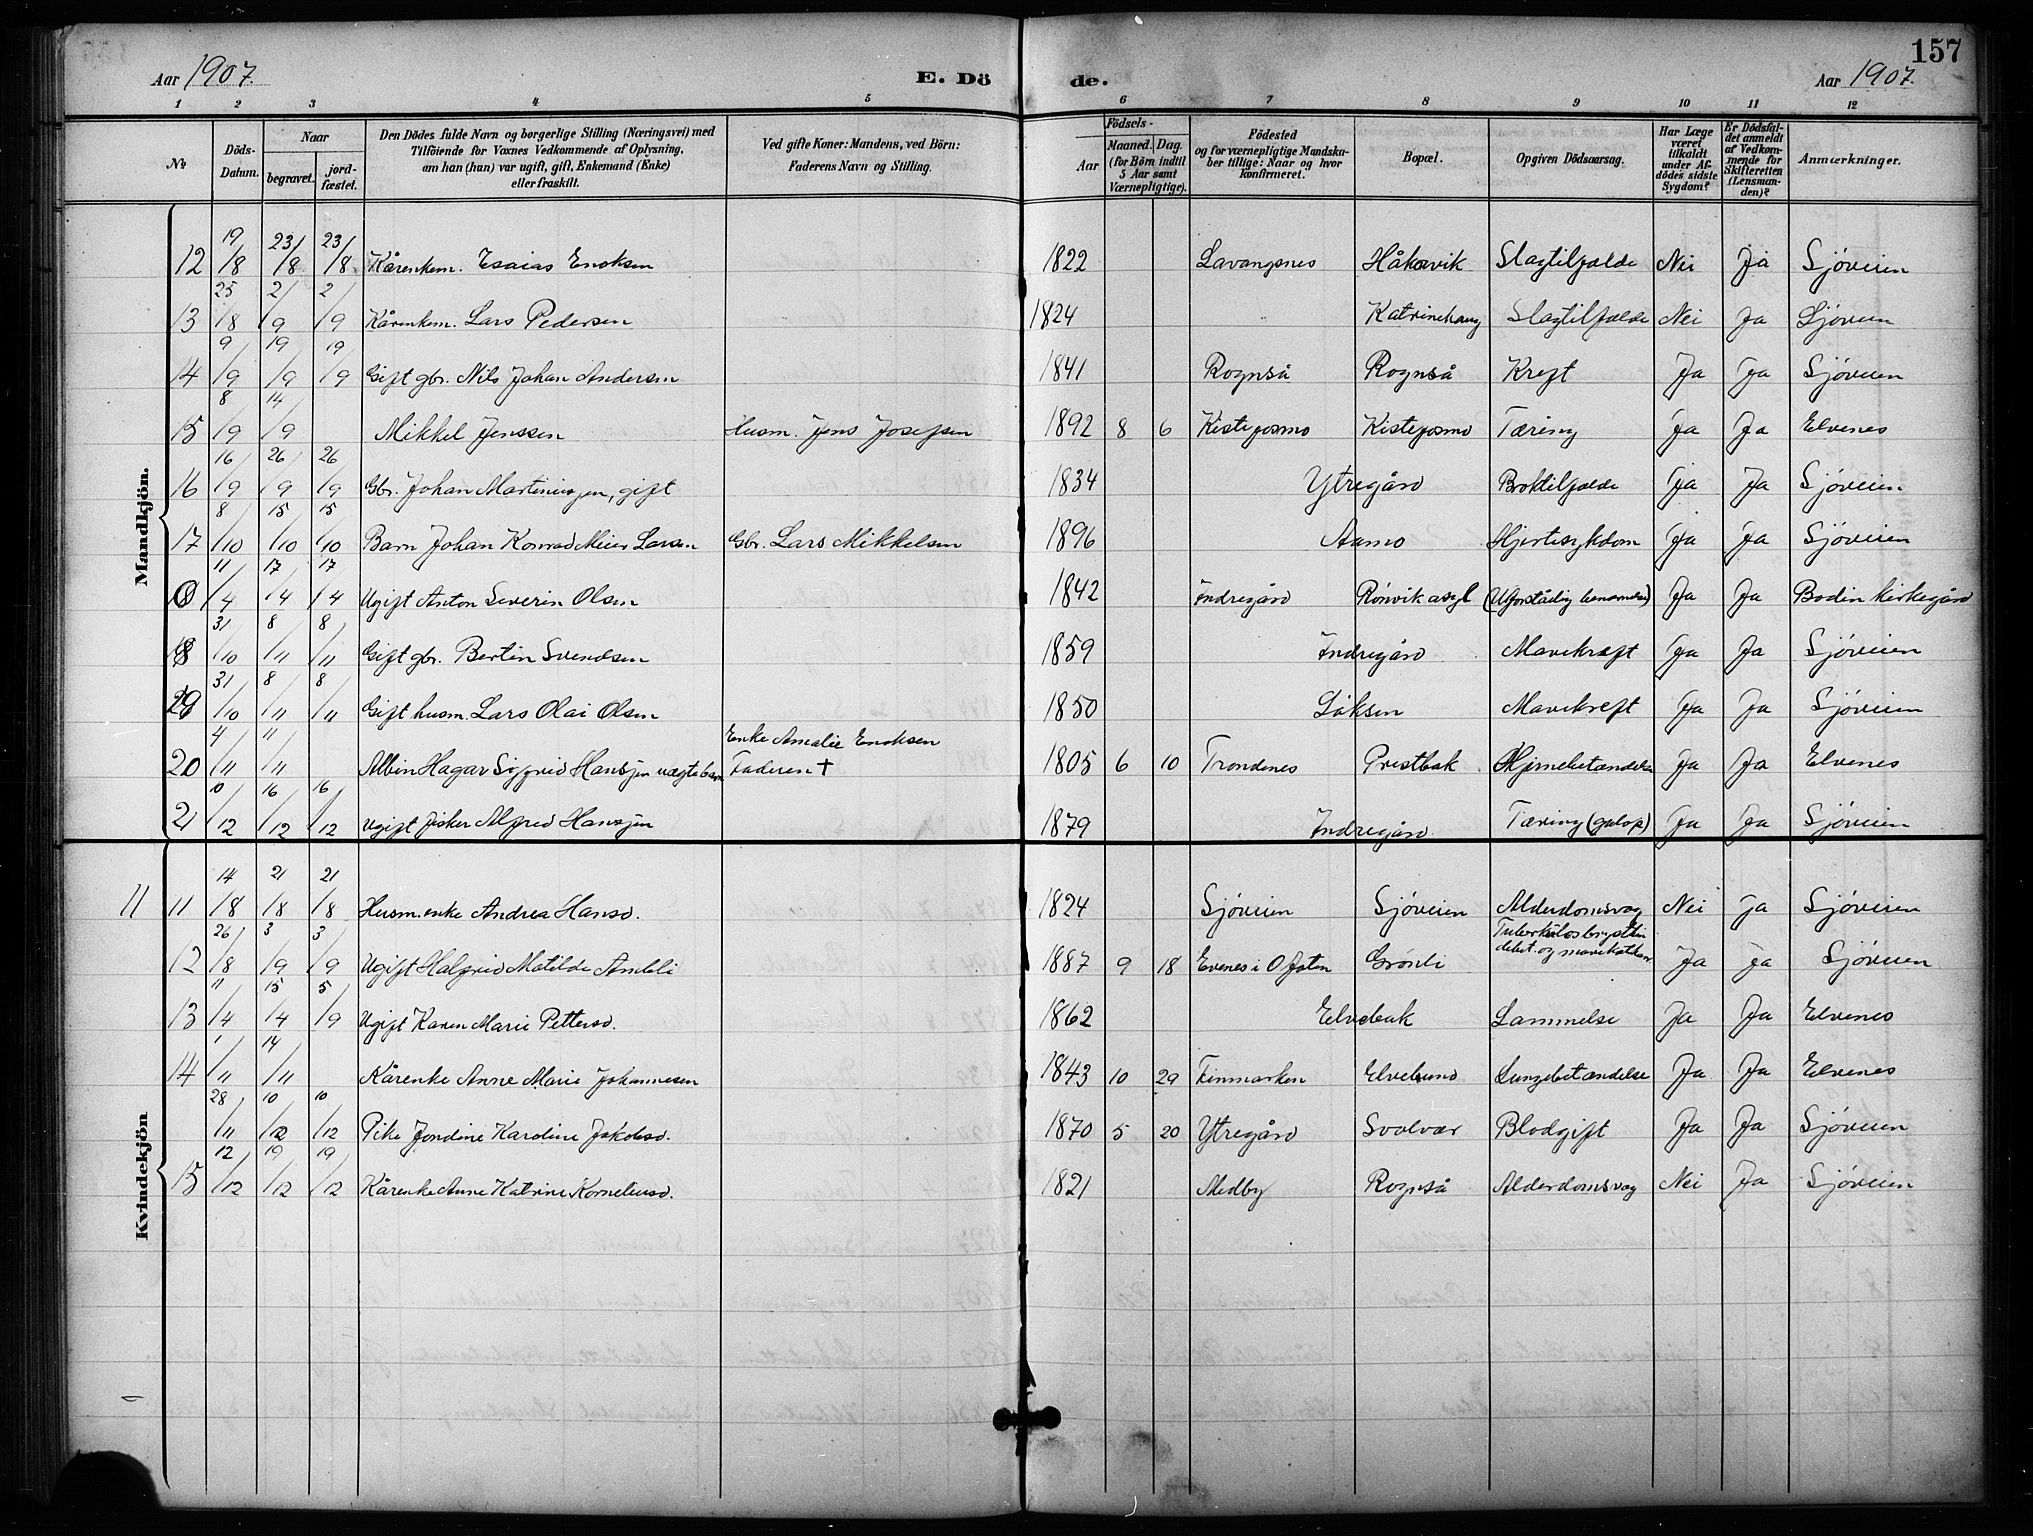 157
Aar 1907. E. Dö de. Aar 1907.
1 2 3 4 5 6 7 8 9 10 11 12
No
Döds-Datum.
Naar
begravet. jord-fæstet.
Den Dödes fulde Navn og borgerlige Stilling (Næringsvei) med
Tilföiende for Voxnes Vedkommende af Oplysning,
om han (hun) var ugift, gift, Enkemand (Enke)
eller fraskilt.
Ved gifte Koner: Mandens, ved Börn:
Faderens Navn og Stilling.
Födsels-
Aar
Maaned. Dag.
(for Börn indtil
5 Aar samt
Værnepligtige).
Födested
og for værnepligtige Mandska-
ber tillige: Naar og hvor
konfirmeret.
Bopæl.
Opgiven Dödsaarsag.
Har Læge
været
tilkaldt
under Af-
dödes sidste
Sygdom?
Er Dödsfal-
det anmeldt
af Vedkom-
mende for
Skifteretten
(Lensman-
den)?
Anmærkninger.
Mandkjön.
12 19/8 23/8 23/8 Kårenkem. Esaias Enoksen 1822 Lavangsnes Håkavik Slagtilfælde Nei Ja Sjöveien
13 25/8 2/9 2/9 Kårenkem. Lars Pedersen 1824 Katrinehaug Slagtilfælde Nei Ja Sjöveien
14 9/9 19/9 19/9 Gift gbr. Nils Johan Andersen 1841 Rognså Rognså Kreft Ja Ja Sjöveien
15 8/9 14/9 Mikkel Jenssen Husm. Jens Josefsen 1892 8 6 Kistefosmo Kistefosmo Tæring Ja Ja Elvenes
16 16/9 26/9 26/9 Gbr. Johan Martiniusen, gift 1834 Ytregård Broktilfælde Ja Ja Sjöveien
17 8/10 15/10 15/10 Barn Johan Konrad Meier Larsen Gbr. Lars Mikkelsen 1896 Aamo Hjertesykdom Ja Ja Sjöveien
11/4 17/4 17/4 Ugift Anton Severin Olsen 1842 Indregård Rönvik asyl (Uforståelig benævnelse) Ja Ja Bodin kirkegård
18 31/10 8/11 8/11 Gift gbr. Bertin Svendsen 1859 Indregård Mavekræft Ja Ja Sjöveien
19 31/10 8/11 8/11 Gift husm. Lars Olai Olsen 1850 Löksen Mavekreft Ja Ja Sjöveien
Enke Amalie Enoksen
20 4/11 11/11 Albin Hagar Sigfrid Hansen uægte barn Faderen † 1805 6 10 Trondenes Prestbak Hjernebetændelse Ja Ja Elvenes
21 10/12 16/12 16/12 Ugift fisker Alfred Hansen 1879 Indregård Tæring (galop) Ja Ja Sjöveien
Kvindekjön
11 11 14/8 21/8 21/8 Husm.enke Andrea Hansd. 1824 Sjöveien Sjöveien Alderdomsvag Nei Ja Sjöveien
12 26/8 3/9 3/9 Ugift Halfrid Matilde Amble 1887 9 18 Evenes i Ofoten Grönli Ja Ja Sjöveien
13 11/4 15/4 5/9 Ugift Karen Marie Pettersd. 1862 Elvebak Lammelse Ja Ja Elvenes
14 1/11 14/11 Kårenke Anne Marie Johannesen 1843 10 29 Finmarken Elvelund Lungebetændelse Ja Ja Elvenes
28/11 10/12 10/12 Pike Jondine Karoline Jakobsd. 1870 5 20 Ytregård Svolvær Blodgift Ja Ja Sjöveien
15 12/12 19/12 19/12 Kårenke Anne Katrine Korneliusd. 1821 Medby Rognså Alderdomsvag Nei Ja Sjöveien